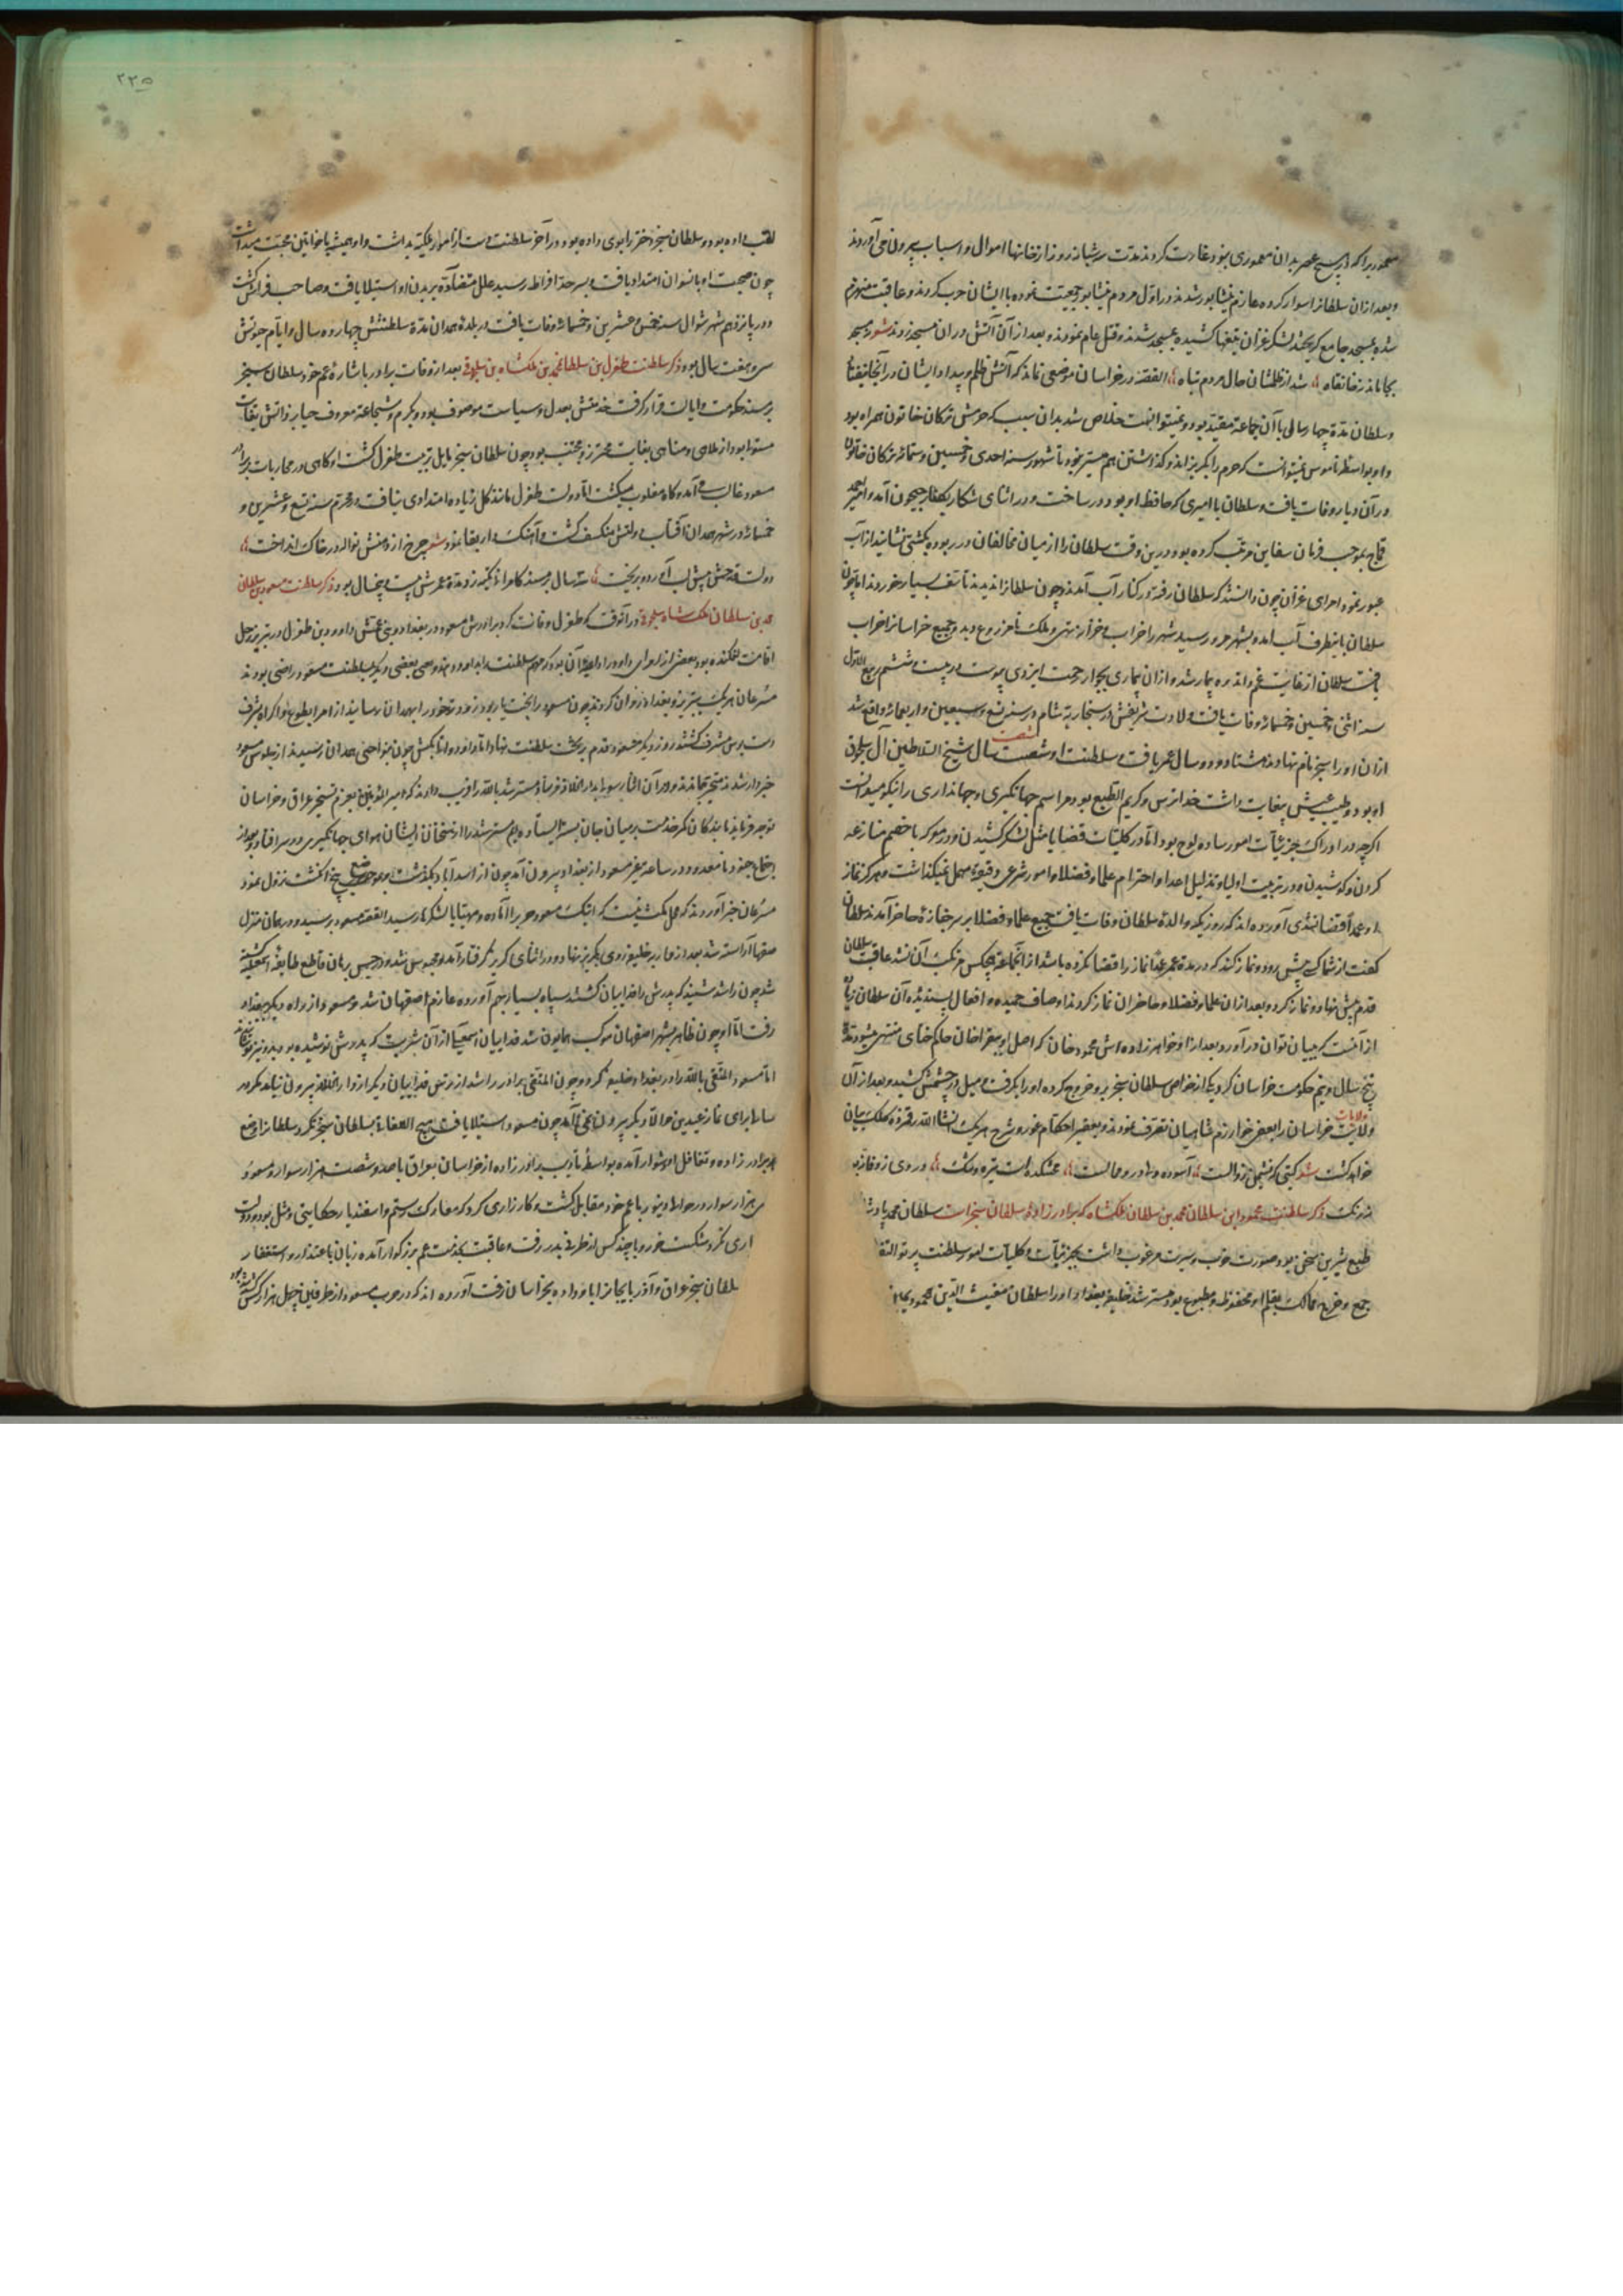 معموریرا که در هیچ عصر بدان معموری نبود غارت کردند مدت سه شبانه روز از خانها اموال و اسباب بیرون می آوردند
و بعد از ان سلطانرا سوار کرده عازم نیشابور شدند در اول مردم نیشابور جمعیت نموده با ایشان حرب کردند و عاقبت منهزم
شده بمسجد جامع گریختند لشکر غزان تیغها کشیده بمسجد شدند و قتل عام نمودند و بعد از آن آتش در ان مسجد زدند شعر مسجد
بجا ماند نه خانقاه شد از ظلمشان حال مردم تباه القصه در خراسان موضعی نماند که آتش ظلم و بیداد ایشان در آنجا نیفتاد
و سلطان مدة چهار سال با آن جماعة مقید بود و نمیتوانست خلاص شد بدان سبب که حرمش ترکان خاتون همراه بود
و او بواسطه ناموس نمیتوانست که حرم را بگریزاند و گذاشتن هم میسر نبود تا شهور سنه احدی و خمسین و ستمائه ترکان خاتون
در آن دیار وفات یافت و سلطان با امیری که حافظ او بود در ساخت و در اثنای شکار بکنار جیحون آمد و امیر
قماج بموجب فرمان سفاین مرتب کرده بود در ین وقت سلطان را از میان مخالفان در ربوده بکشتی نشانید از آب
عبور نمود امرای غزان چون دانستند که سلطان رفته در کنار آب آمدند و چون سلطانرا ندیدند تأسف بسیار خوردند اما چون
سلطان باینطرف آب آمد و بشهر مرو رسید شهر را خراب و خزانه تهی و ملک نامزروع دید و جمیع خراسانرا خراب
یافت سلطان از غایت غم و اندوه بیمار شد و از ان بیماری بجوار رحمت ایزدی پیوست در بیست و ششم ربیع الاول
سنه اثنی و خمسین و خمسمائه وفات یافت ولادت شریفش در سنجاریه شام در سنه تسع و سبعین و اربعمائه واقع شد
ازان او را سنجر نام نهادند هشتاد و دو سال عمر یافت و سلطنت او شصت سال شیخ السلاطین آل سلجوق
او بود و طیب عیش بغایت داشت خدا ترس و کریم الطبع بود مراسم جهانگیری و جهانداری را نیکو میدانست
اگر چه در ادراک جزئیات امور ساده لوح بود اما در کلیات قضایا مثل لشکر کشیدن و در معرکه با خصم منازعه
کردن و کوشیدن و در تربیت اولیا و تذلیل اعدا و احترام علما و فضلا و امور شرعی دقیقه مهمل نمیگذاشت و هرگز نماز
او عمداً قضا نشدی آورده اند که روزیکه والدة سلطان وفات یافت جمیع علما و فضلا بر سر جنازة حاضر آمدند سلطان
گفت از شما کسی پیش رود و نماز کند که در مدة عمر عمداً نماز را قضا نکرده باشد از انجماعة هیچکس مرتکب آن نشد عاقبت سلطان
قدم پیش نهاد و نماز کرد و بعد از ان علما و فضلا و حاضران نماز کردند اوصاف حمیده و افعال پسندیدة آن سلطان زیاده
از آنست که ببیان توان در آورد و بعد از او خواهر زاده اش محمود خان که اصل او ببغراخان حاکم ختای منتهی میشود مدة
پنج سال و نیم حکومت خراسان کرد یکی از خواص سلطان سنجر برو خروج کرده او را بگرفت و میل در چشمش کشید و بعد از آن
ولایت خراسان را بعضی خوارزم شاهیان تصرف نمودند و بعضی را حکام غور و شرح هر یک انشا الله رقم زده کلک بیان
خواهد گشت شعر گیتی که نشیمن زوالست آسوده دلی درو محالست غمکده است تیره و تنگ در وی ز وفا نه بو
نه رنگ ذکر سلطنت محمود ابن سلطان محمد بن سلطان ملکشاه که برادر زادۀ سلطان سنجر است سلطان محمد پادشا
طبع شیرین سخن بود صورت خوب و سیرت مرغوب داشت بجزئیات و کلیات امور سلطنت پرتو التفا
جمع و خرج ممالک بقلم او محفوظ و مطبوع بود مسترشد خلیفه بغداد او را سلطان مغیث الدین محمود یمین
۲۲۵
لقب داده بود و سلطان سنجر دختر را بوی داده بود در آخر سلطنت دست از امور ملکیه بداشت و او همیشه با خواتین محبت میداشت
چون صحبت او با نسوان امتداد یافت و بسر حد افراط رسید علل متضاده بر بدن او استیلا یافت و صاحب فراش گشت
و در پانزدهم شهر شوال سنه خمس و عشرین و خمسمائه وفات یافت در بلدة همدان مدة سلطنتش چهارده سال و ایام حیوتش
سی و هفت سال بود ذکر سلطنت طغرل بن سلطان محمد بن ملکشاه بن سلجوقی بعد از وفات برادر باشارة عم خود سلطان سنجر
بر مسند حکومت و ایالت قرار گرفت خدمتش بعدل و سیاست موصوف بود و بکرم و شجاعة معروف حیا بر ذاتش بغایت
مستولی بود از ملاهی و مناهی بغایت محترز و مجتنب بود چون سلطان سنجر مایل تربیت طغرل گشت او گاهی در محاربات برادر
مسعود غالب می آمد و گاه مغلوب میگشت اما دولت طغرل مانند گل زیاده امتدادی نیافت و در محرم سنه تسع و عشرین و
خمسمائه در شهر همدان آفتاب دولتش منکسف گشت و آهنگ دار بقا نمود شعر چرخ از دهنش نواله در خاک انداخت
دولت قدحش پیش لب آورد و بریخت سه سال بر مسند کامرانی تکیه زد مدة عمرش بیست و پنج سال بود ذکر سلطنت مسعود بن سلطان
محمد بن سلطان ملک شاه سلجوقی در آنوقت که طغرل وفات کرد برادرش مسعود در بغداد و بنی عمش داود بن طغرل در تبریز رحل
اقامت افکنده بود بعضی از امرای داود را داعیه آن بود که مهم سلطنت را بدو دهند و بعضی دیگر بسلطنت مسعود راضی بودند
مسرعان هر یک بتبریز و بغداد روان کردند چون مسعود را بخت یار بود زودتر خود را بهمدان رسانید از امرا بطوع و اکراه بشرف
دست بوس مشرف گشتند روز دیگر مسعود قدم بر تخت سلطنت نهاد اما داود و اتابکش چون بنواحی همدان رسیدند از جلوس مسعود
خبردار شدند متحیر بماندند و در آن اثنا رسولی از دار الخلافه فرستاد مسترشد بالله را فریب دادند که امیر المؤمنین بعزم تسخیر عراق و خراسان
توجه فرماید ما بندگان کمر خدمت بر میان جان بسته ایستاده ایم مسترشد را از سخنان ایشان هوای جهانگیری در سر افتاد
اجتماع جنود نا معدود در ساعت بعزم مسعود از بغداد بیرون آمد چون از اسدآباد بگذشت بموضع پنج انگشت نزول نمود
مسرعان خبر آوردند که محل مکث نیست که اینک مسعود حرب را آماده و مهیا با لشکر ما رسید القصه مسعود برسید و در همان منزل
صفها آراسته شد بعد از محاربه خلیفه روی بگریز نهاد و در اثنای گریز گرفتار آمد و محبوس شد و در حبس بزمان قاطع طایفه اسمعیلیه کشته
شد چون راشد شنید که پدرش را فداییان کشتند سپاه بسیار جمع آورده عازم اصفهان شد و مسعود از راه دیگر ببغداد
رفت اما او چون بظاهر شهر اصفهان موکب همایون شد فداییان اسمعیلیه از آن شربت که پدرش نوشیده بود بدو نیز
اما مسعود المقتفی بالله را در بغداد خلیفه کرد و چون المقتفی برادر راشد از ترس فداییان دیگر از دار الخلافه بیرون نیامد مگر در
سالها برای نماز عیدین حوالا دیگر بیرون نمی آمد چون مسعود استیلا یافت هیچ التفات بسلطان سنجر نکرد و سلطانرا وضع
برادر زاده و تغافل او دشوار آمده بواسطه تأدیب برادر زاده از خراسان بعراق با صد و شصت هزار سوار و مسعود
سی هزار سوار در حوالی دینور با عم خود مقابل گشت و کار زاری کرد که معارک رستم و اسفندیار حکایتی و مثل بود دولت
یاری نکرد شکست خورد با چند کس از طرفی بدر رفت و عاقبت بخدمت عم بزرگوار آمده زبان باعتذار و استغفار
سلطان سنجر عراق و آذربایجانرا باو داده بخراسان رفت آورده اند که در حرب مسعود از طرفین چهل هزار کس کشته شد